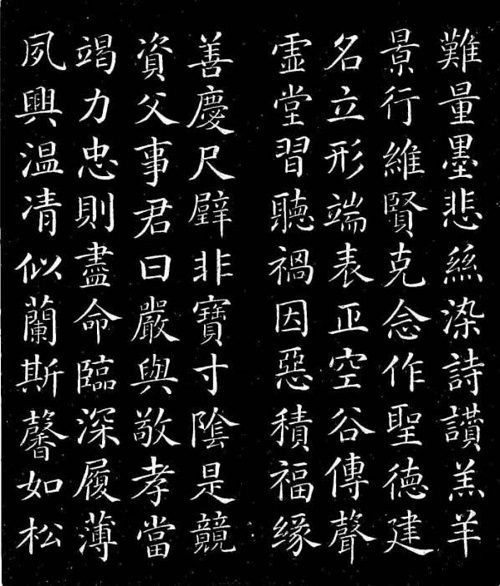 難量墨悲絲染詩讃羔羊
景行維賢克念作聖德建
名立形端表正空谷傳聲
虛堂習聽禍因惡積福緣
善慶尺璧非寶寸陰是競
資父事君曰嚴與敬孝當
竭力忠則盡命臨深履薄
夙興温凊似蘭斯馨如松